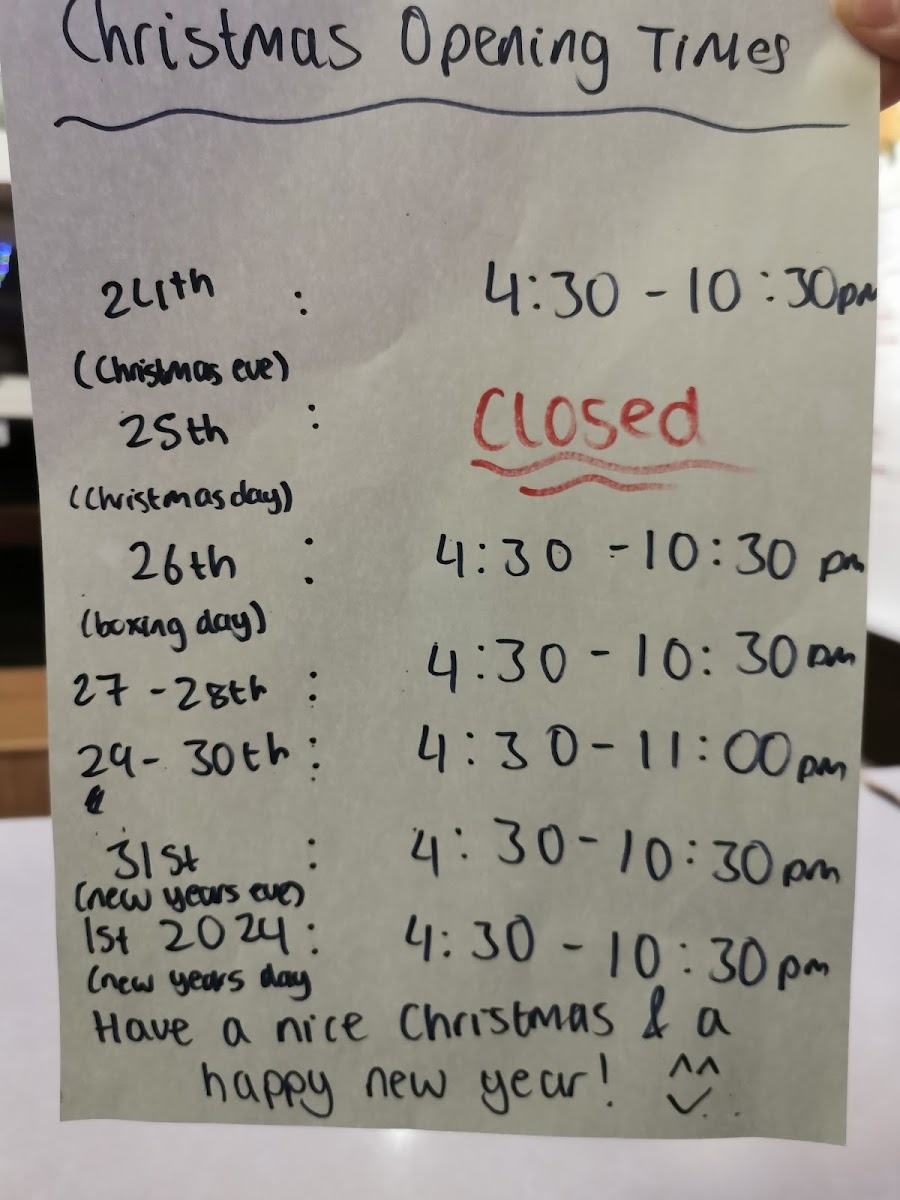 Christmas Opening Times
24th : 4:30 - 10:30pm
(Christmas eve)
25th : Closed
(Christmas day)
26th : 4:30 - 10:30 pm
(boxing day)
27 - 28th : 4:30 - 10:30pm
29 - 30th : 4:30 - 11:00pm
31st : 4:30 - 10:30pm
(new years eve)
1st 2024 : 4:30 - 10:30pm
(new years day
Have a nice Christmas & a
happy new year! ^^